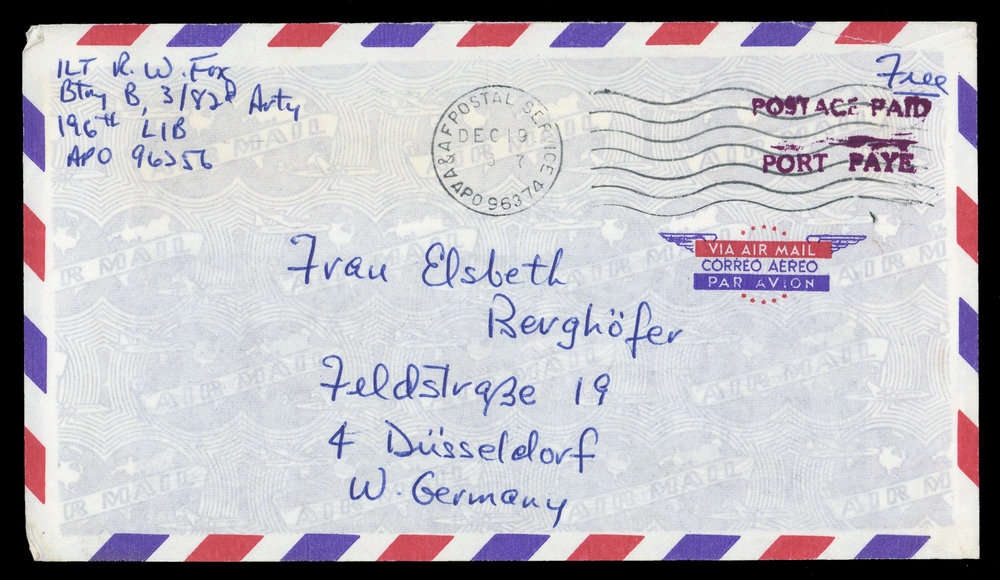 1LT R. W. Fox
Btry B, 3/82d Arty
196th LIB
APO 96256
Free
A&AF POSTAL SERVICE
DEC 19
APO 96374
POSTAGE PAID
PORT PAYE
VIA AIR MAIL
CORREO AEREO
PAR AVION
Frau Elsbeth
Berghöfer
Feldstraße 19
4 Düsseldorf
W. Germany
AIR MAIL
AIR MAIL
AIR MAIL
AIR MAIL